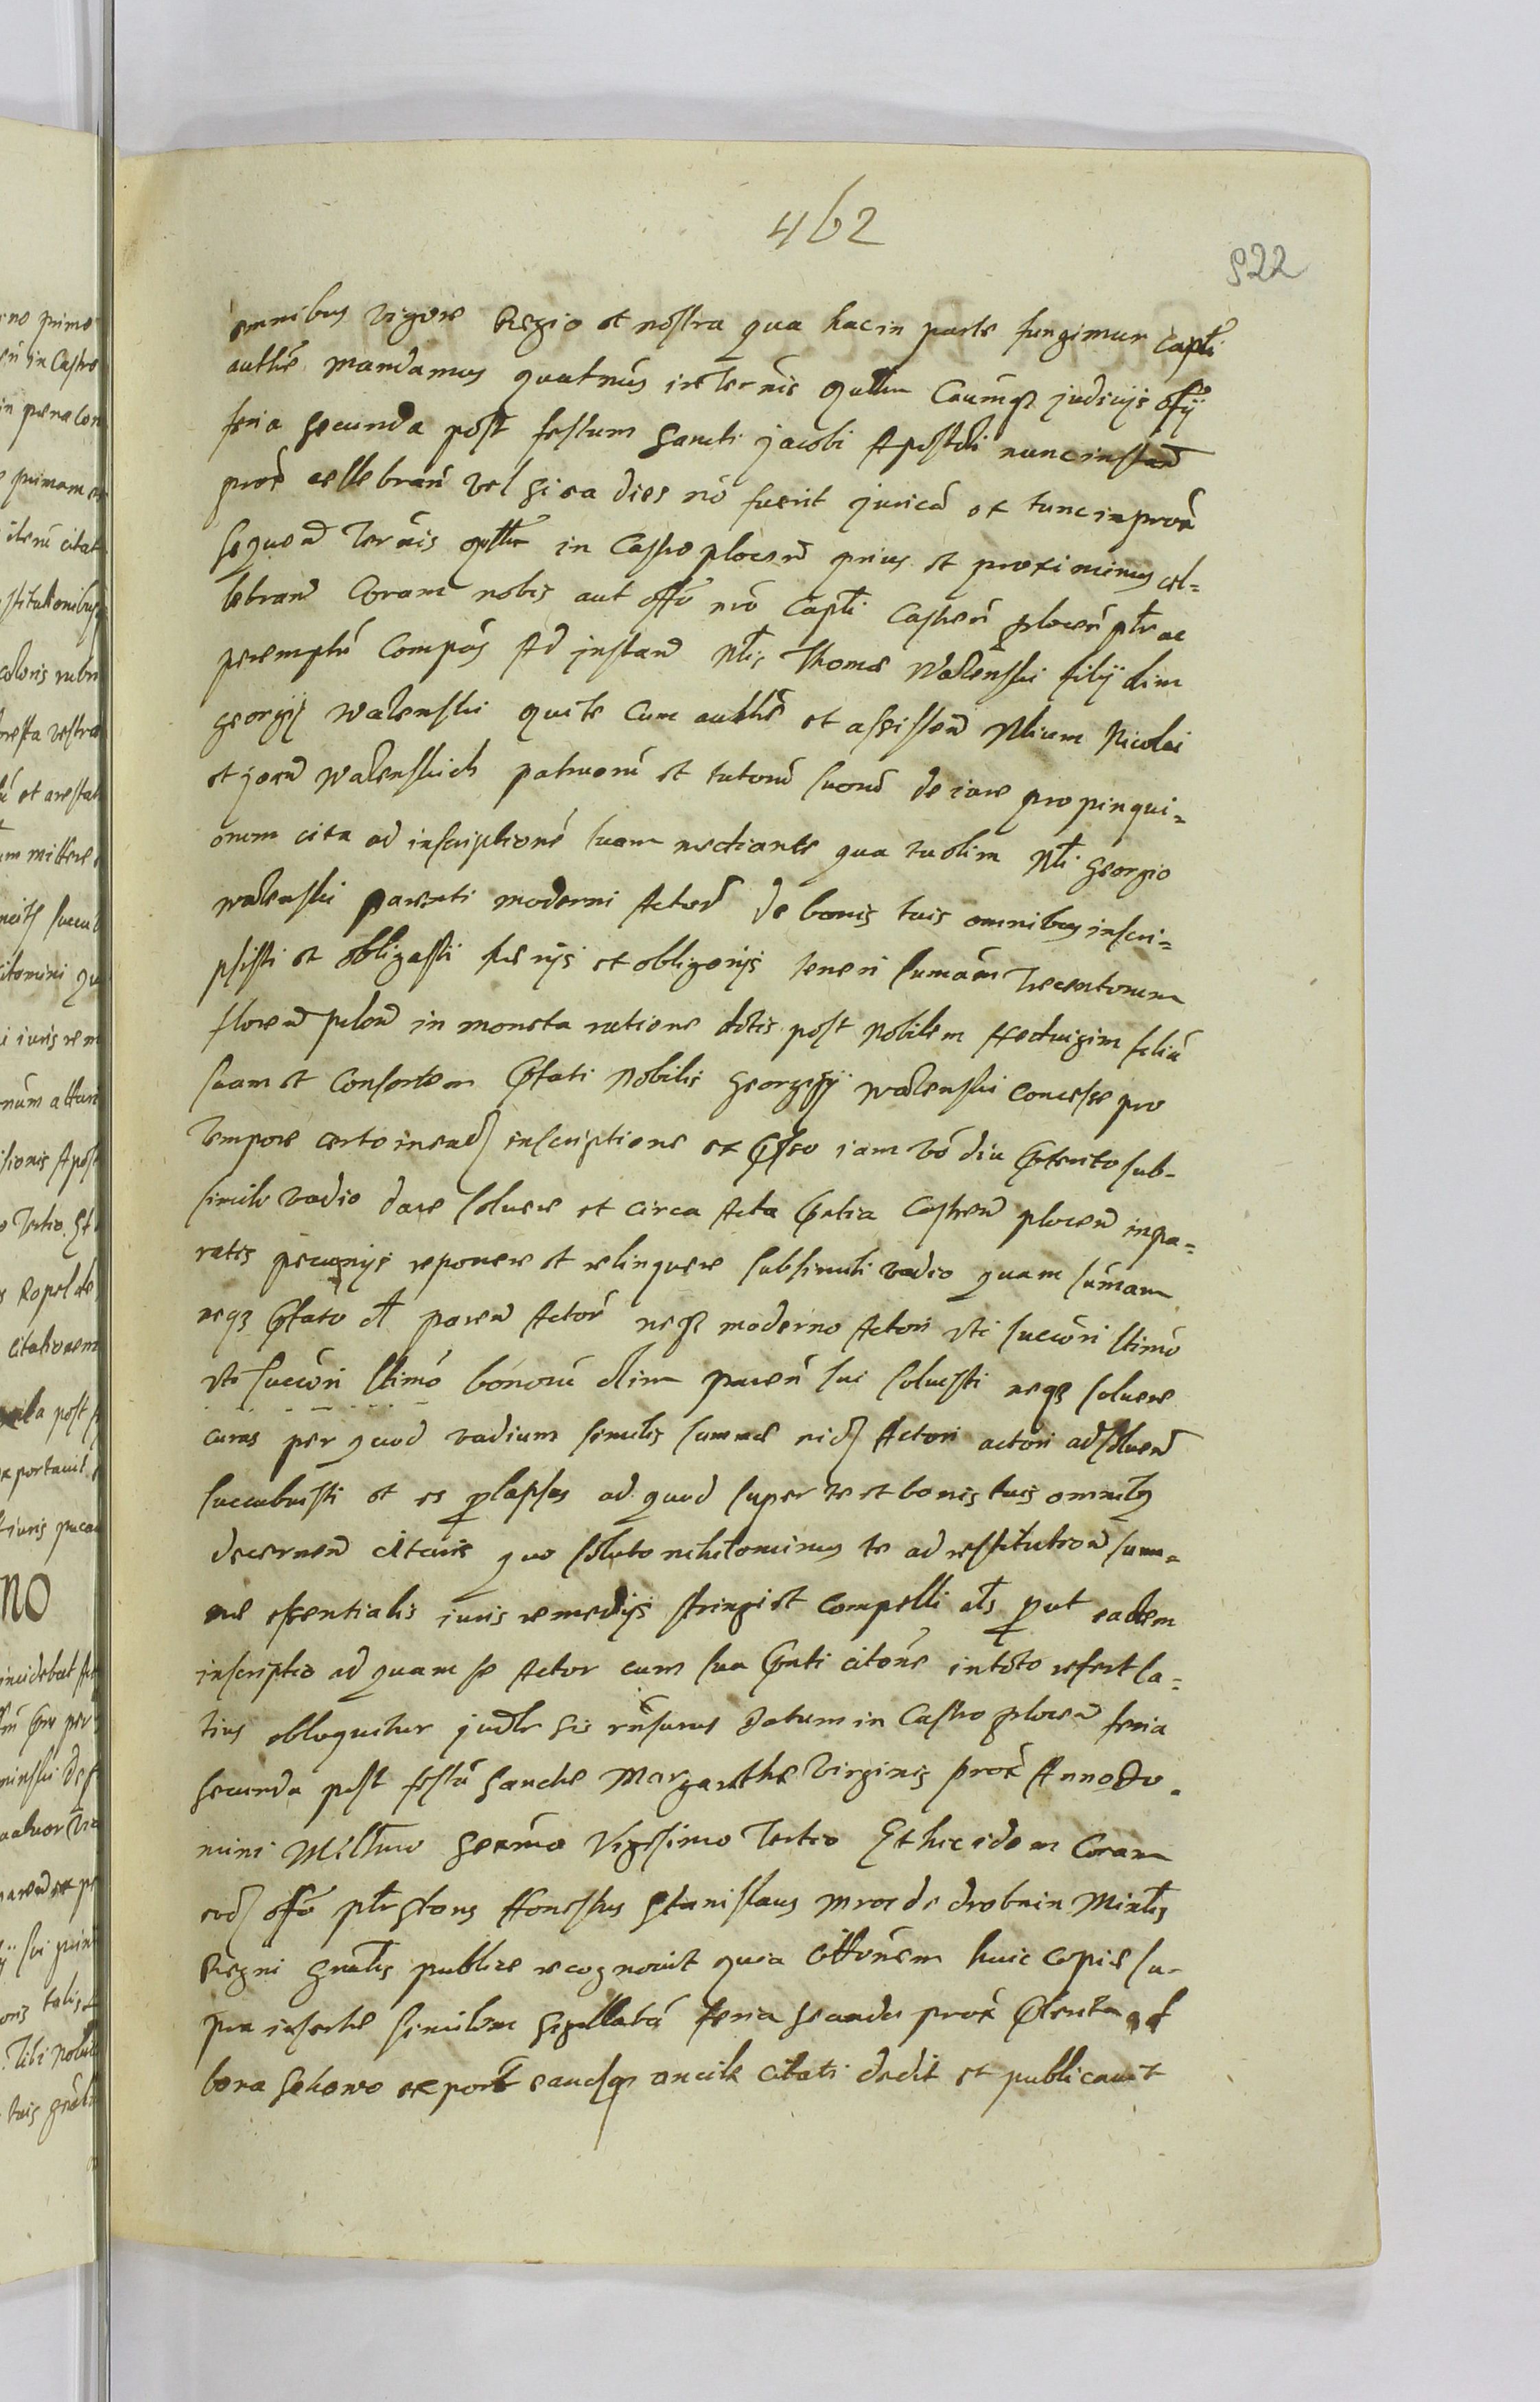 462
922
omnibus vigore Regio et nostra qua hac in parte fungimur captli
authe mandamus quatnus in ternis qullm Caumqz judicijs offij
feria secunda post festum Sancti jacobi Apostoli nunc instan
prox cellebran vel si ea dies no fuerit jurica ex tunc in prox
sequen ternis in Castro plocen prius et proximius cel=
lebran Coram nobis aut offo nro Captli Castren plocen pltr ac
peremptu Compas Ad instan Nlis Thomae Walenski filij olim
georgij walenski qui te cum authe et assisten Nlium Nicolai
et joan walenskich patruoru et tutoru suoru de iure propinqui=
orum cita ad inscriptione suam mediante qua tu olim Nli Georgio
walenski parenti moderni Actor de bonis tuis omnibus inscri=
psisti et obligasti te nijs et obligonijs teneri sumam Trecentorum
floren polon in moneta ratione dotis post Nobilem Heduigim filia
suam et Consortem pfati Nobilis georgij walenski concesse pro
tempore certo in ead inscriptione expsso iam vo diu pterito sub-
simili vadio dare soluere et circa Acta pntia Castren plocen in pa=
ratis pecunijs reponere et relinquere sub simili vadio quam sumam
neqz pfato ol paren Actore neqz moderno Actori vti succori ltimo
vti succori ltimo bonoru olim paren sui soluisti neqz soluere
curas per quod vadium similis summae eid Actori actori ad soluen
succubuisti et es plapsus ad quod super te et bonis tuis omnibus
decernen citaris quo soluto nihilominus te ad restitution sum=
me essentialis iuris remedijs stringi et compelli als put eadem
inscriptio ad quam se Actor cum sua pnti citone in toto refert la=
tius obloquitur judlr sis rnsurus Datum in Castro plocen feria
secunda post festu Sanctae Margarethe Virginis prox Anno Do.
mini Milltmo Sexmo Vigesimo Tertio Et hic idem Coram
eod offo pltr stans Honestus Stanislaus mroz de drobnin Minlis
Regni gnalis publice recognouit quia cittonem huic copie su-
pra inserte similem sigillata feria secunda prox pterita ad
bona Sokowo export eandqz ancile citati dedit et publicauit